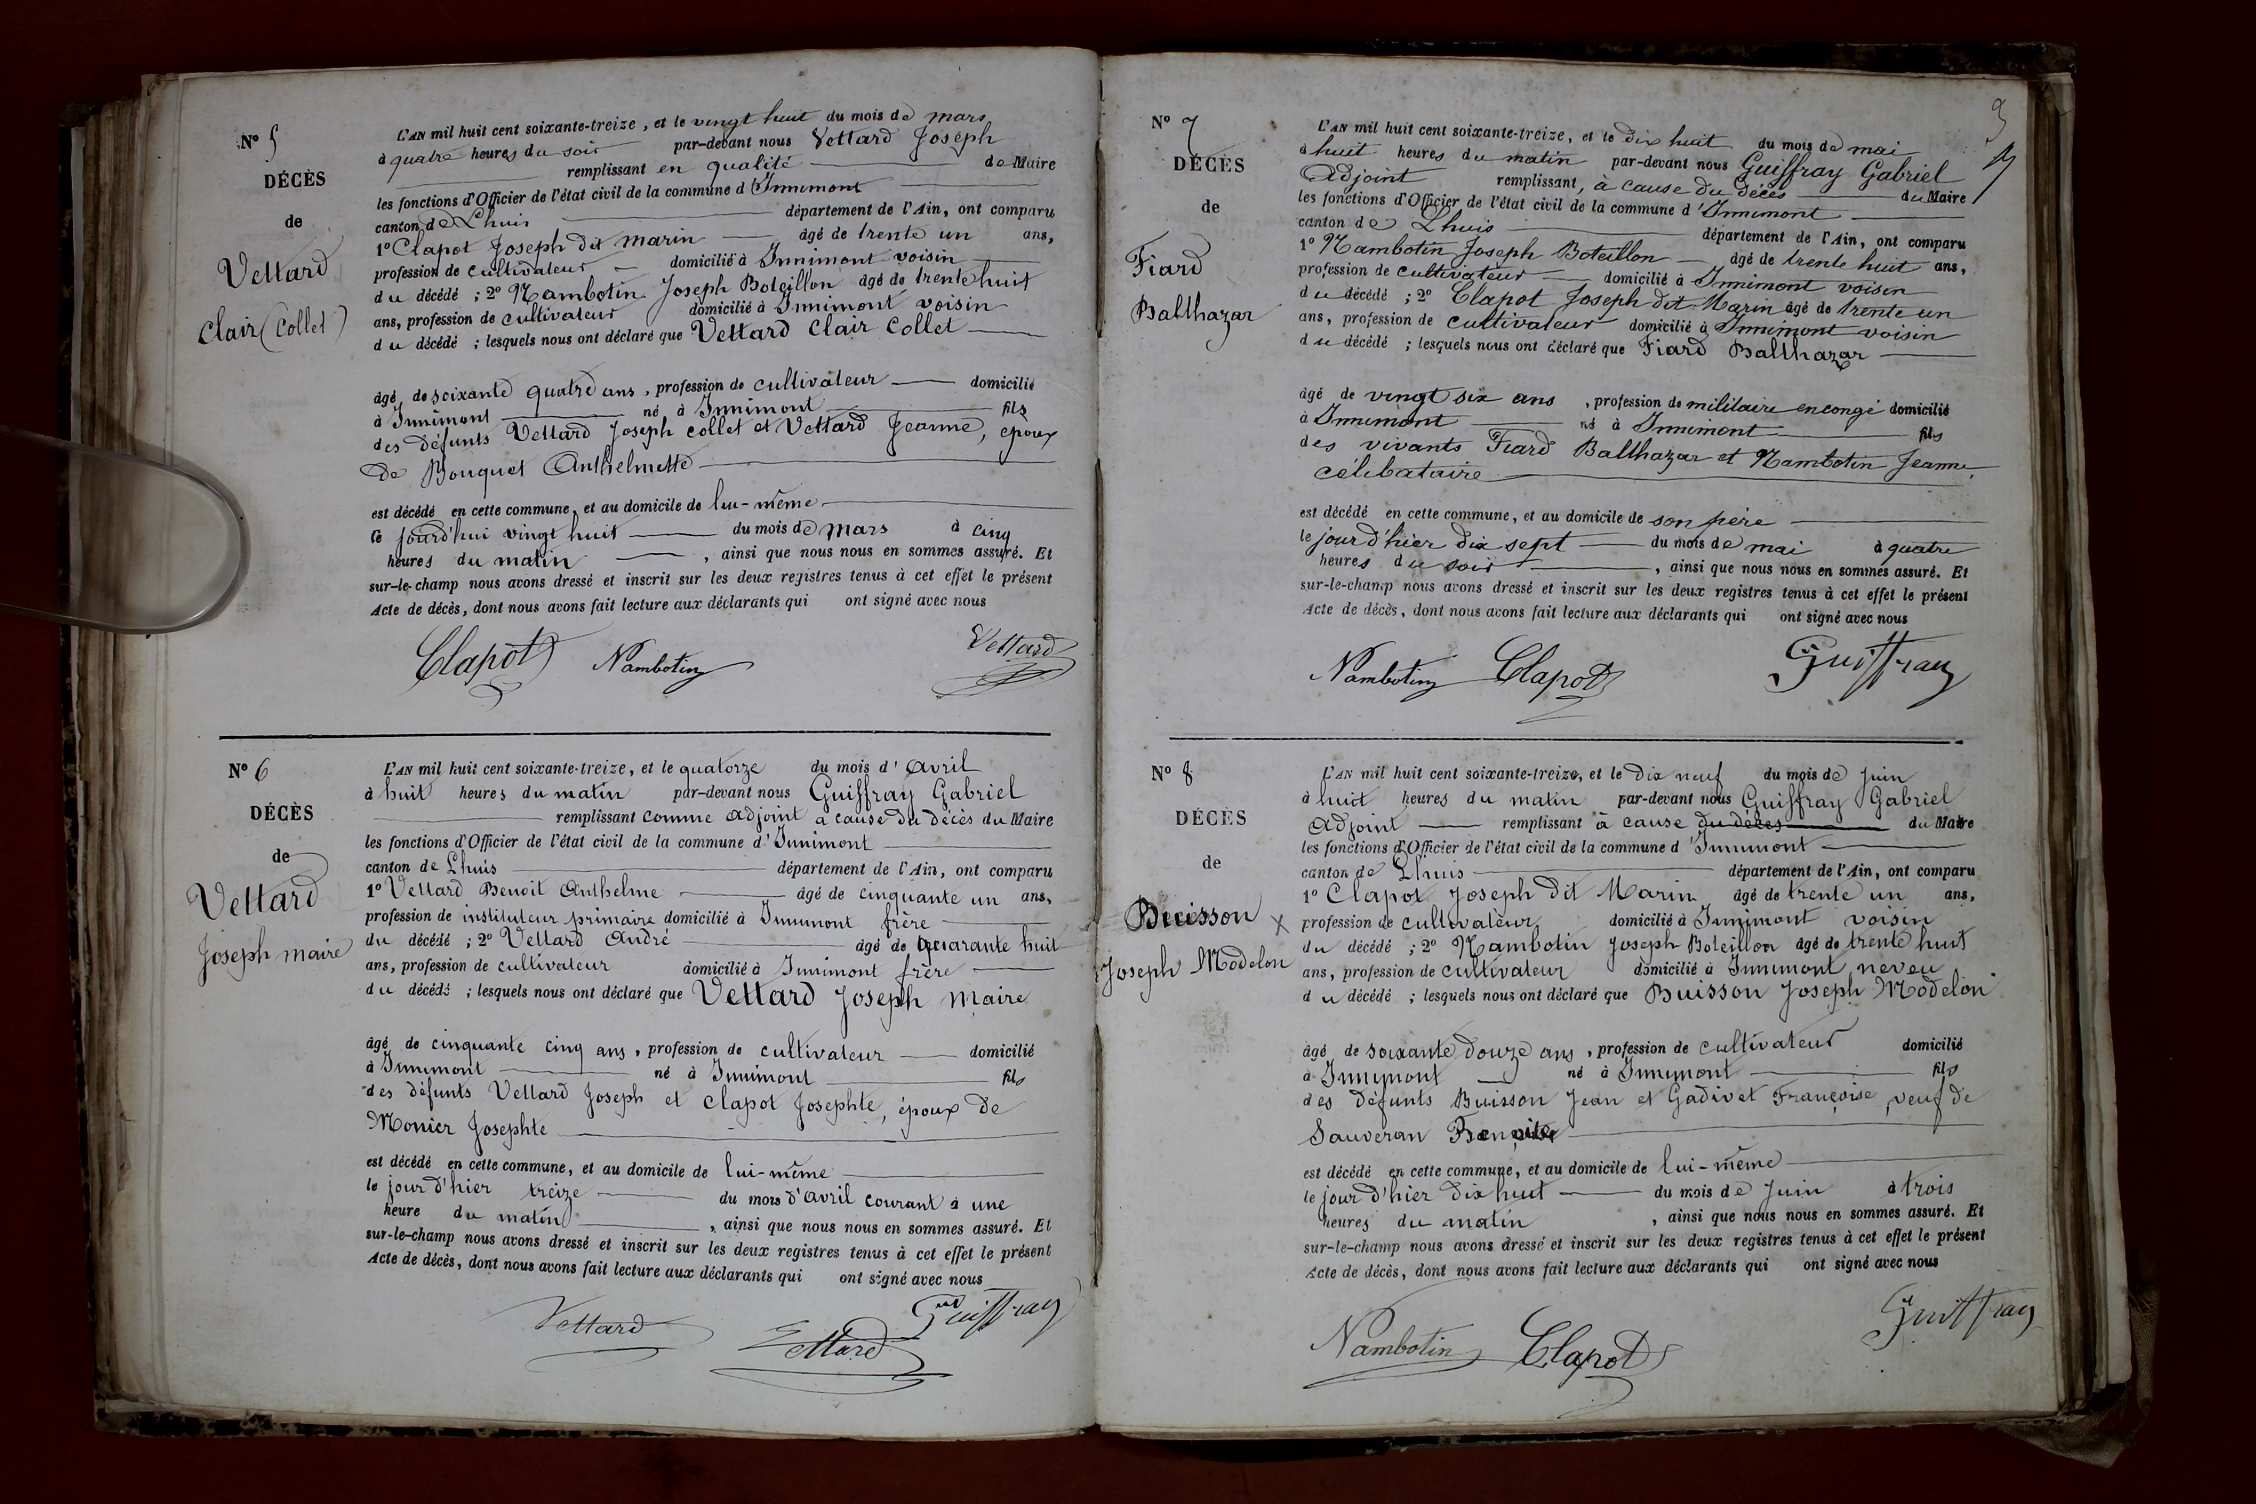 N° 5
DÉCÈS
de
Vettard
Clair (Collet)
L'AN mil huit cent soixante-treize, et le vingt huit du mois de mars
à quatre heures du soir par-devant nous Vettard Joseph
remplissant en qualité de Maire
les fonctions d'Officier de l'état civil de la commune d'Innimont
canton de Lhuis département de l'Ain, ont comparu
1° Clapot Joseph dit Marin âgé de trente un ans,
profession de cultivateur domicilié à Innimont voisin
du décédé ; 2° Nambotin Joseph Boteillon âgé de trente huit
ans, profession de cultivateur domicilié à Innimont voisin
du décédé ; lesquels nous ont déclaré que Vettard Clair Collet
âgé de soixante quatre ans, profession de cultivateur domicilié
à Innimont né à Innimont fils
des défunts Vettard Joseph collet et Vettard Jeanne, époux
de Bouquet Anthelmette
est décédé en cette commune, et au domicile de lui-même
le jourd'hui vingt huit du mois de mars à cinq
heures du matin, ainsi que nous nous en sommes assuré. Et
sur-le-champ nous avons dressé et inscrit sur les deux registres tenus à cet effet le présent
Acte de décès, dont nous avons fait lecture aux déclarants qui ont signé avec nous
Clapot Nambotin Vettard
N° 6
DÉCÈS
de
Vettard
Joseph maire
L'AN mil huit cent soixante-treize, et le quatorze du mois d'avril
à huit heures du matin par-devant nous Guiffray Gabriel
remplissant comme adjoint à cause du décès du Maire
les fonctions d'Officier de l'état civil de la commune d'Innimont
canton de Lhuis département de l'Ain, ont comparu
1° Vettard Benoit Anthelme âgé de cinquante un ans,
profession de instituteur primaire domicilié à Innimont frère
du décédé ; 2° Vettard André âgé de quarante huit
ans, profession de cultivateur domicilié à Innimont frère
du décédé ; lesquels nous ont déclaré que Vettard Joseph Maire
âgé de cinquante cinq ans, profession de cultivateur domicilié
à Innimont né à Innimont fils
des défunts Vettard Joseph et Clapot Josephte, époux de
Monier Josephte
est décédé en cette commune, et au domicile de lui-même
le jour d'hier treize du mois d'avril courant à une
heure du matin, ainsi que nous nous en sommes assuré. Et
sur-le-champ nous avons dressé et inscrit sur les deux registres tenus à cet effet le présent
Acte de décès, dont nous avons fait lecture aux déclarants qui ont signé avec nous
Vettard Vettard Guiffray
N° 7
DÉCÈS
de
Fiard
Balthazar
L'AN mil huit cent soixante-treize, et le dix huit du mois de mai
à huit heures du matin par-devant nous Guiffray Gabriel
Adjoint remplissant, à cause du décès du Maire
les fonctions d'Officier de l'état civil de la commune d'Innimont
canton de Lhuis département de l'Ain, ont comparu
1° Nambotin Joseph Boteillon âgé de trente huit ans,
profession de cultivateur domicilié à Innimont voisin
du décédé ; 2° Clapot Joseph dit Marin âgé de trente un
ans, profession de cultivateur domicilié à Innimont voisin
du décédé ; lesquels nous ont déclaré que Fiard Balthazar
âgé de vingt six ans, profession de militaire en congé domicilié
à Innimont né à Innimont fils
des vivants Fiard Balthazar et Nambotin Jeanne,
célibataire
est décédé en cette commune, et au domicile de son père
le jour d'hier dix sept du mois de mai à quatre
heures du soir, ainsi que nous nous en sommes assuré. Et
sur-le-champ nous avons dressé et inscrit sur les deux registres tenus à cet effet le présent
Acte de décès, dont nous avons fait lecture aux déclarants qui ont signé avec nous
Nambotin Clapot Guiffray
N° 8
DÉCÈS
de
Buisson
Joseph Modelon
L'AN mil huit cent soixante-treize, et le dix neuf du mois de juin
à huit heures du matin par-devant nous Guiffray Gabriel
Adjoint remplissant à cause du décès du Maire
les fonctions d'Officier de l'état civil de la commune d'Innimont
canton de Lhuis département de l'Ain, ont comparu
1° Clapot Joseph dit Marin âgé de trente un ans,
profession de cultivateur domicilié à Innimont voisin
du décédé ; 2° Nambotin Joseph Boteillon âgé de trente huit
ans, profession de cultivateur domicilié à Innimont neveu
du décédé ; lesquels nous ont déclaré que Buisson Joseph Modelon
âgé de soixante douze ans, profession de cultivateur domicilié
à Innimont né à Innimont fils
des défunts Buisson Jean et Gadivet Françoise, veuf de
Sauveran Benoite
est décédé en cette commune, et au domicile de lui-même
le jour d'hier dix huit du mois de juin à trois
heures du matin, ainsi que nous nous en sommes assuré. Et
sur-le-champ nous avons dressé et inscrit sur les deux registres tenus à cet effet le présent
Acte de décès, dont nous avons fait lecture aux déclarants qui ont signé avec nous
Nambotin Clapot Guiffray